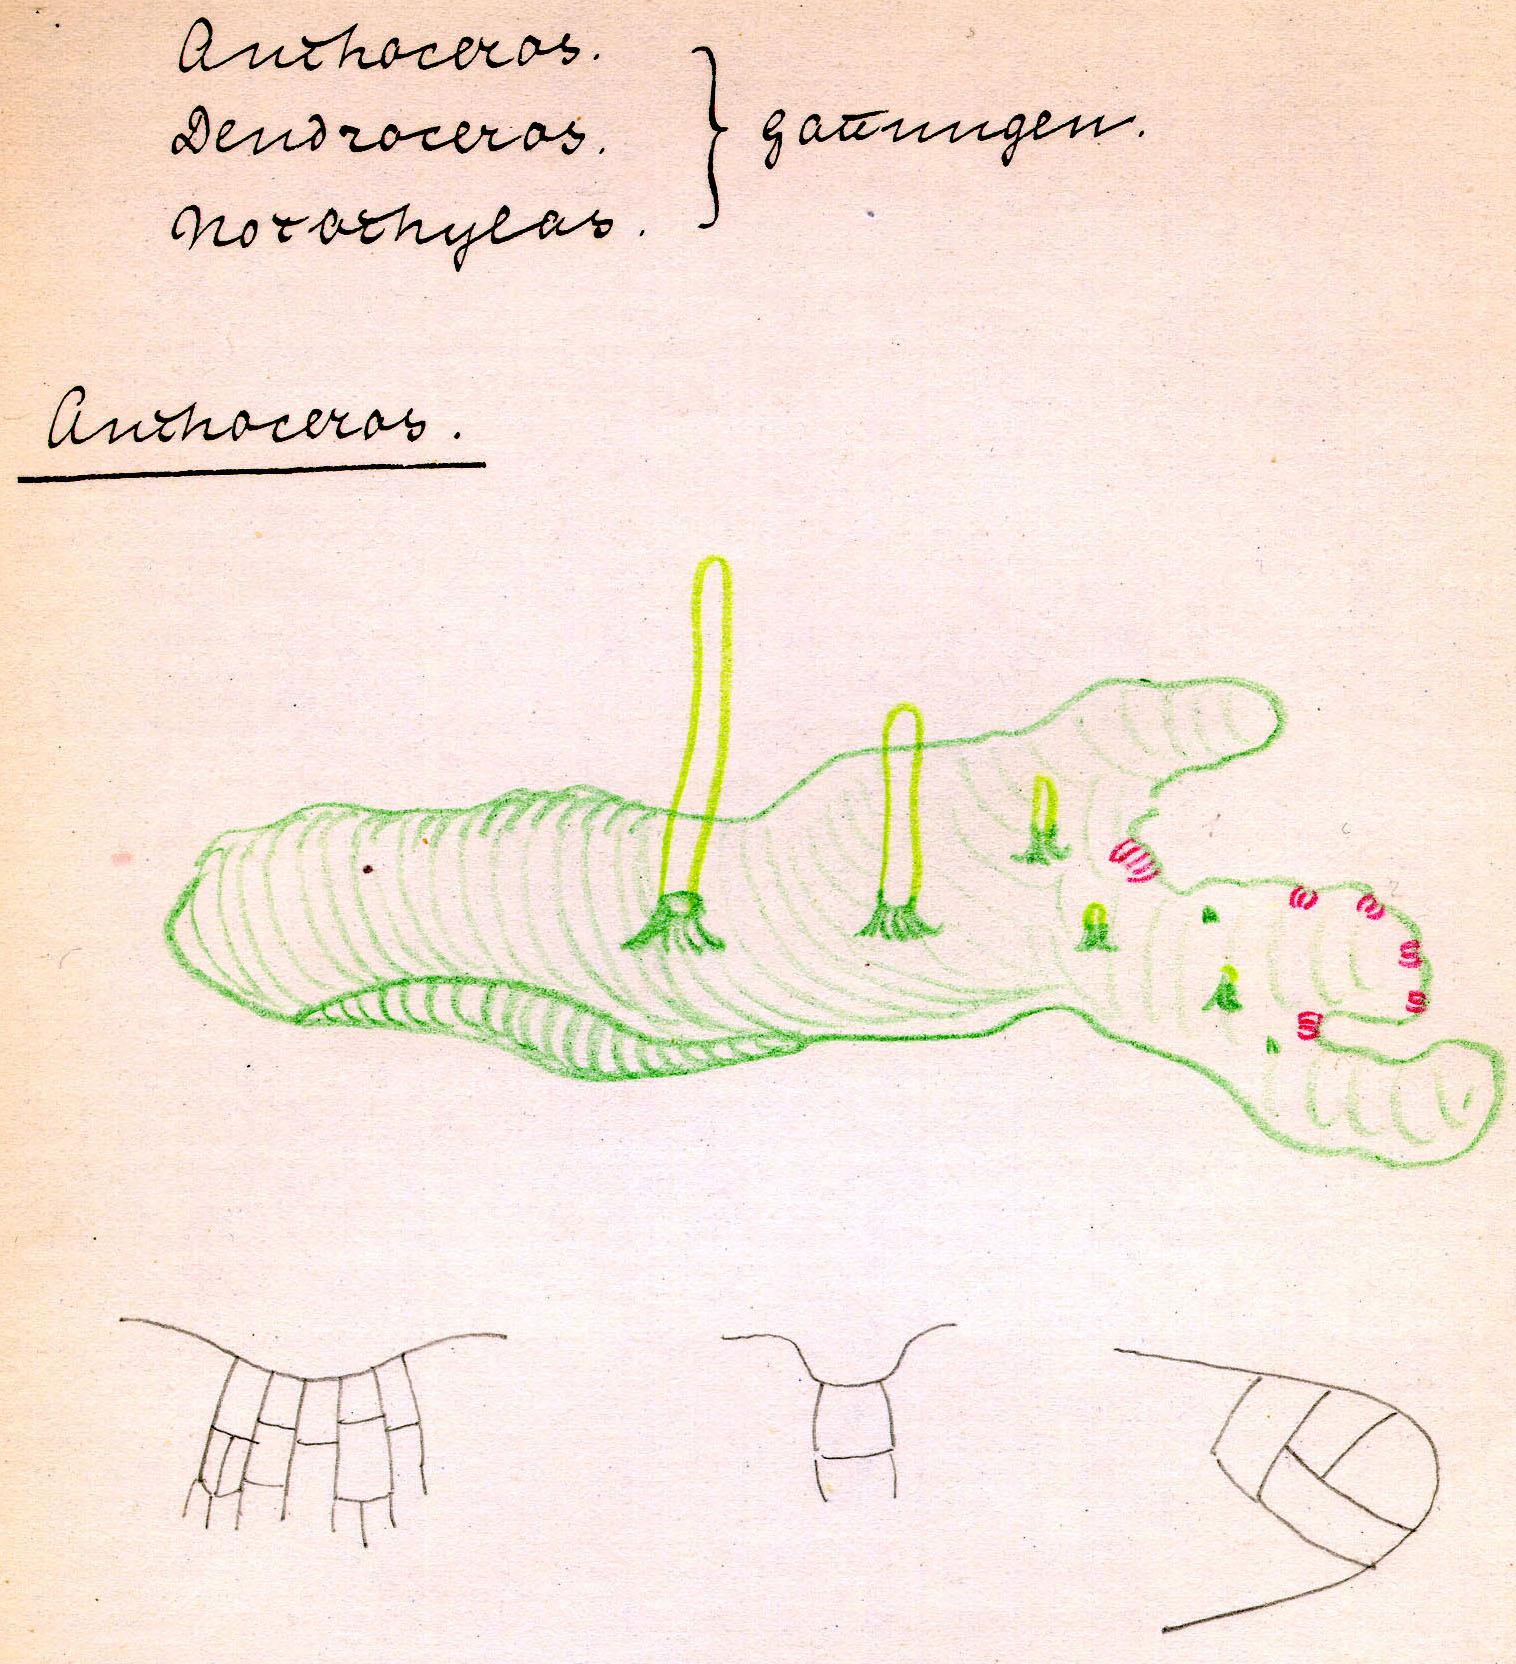 Anthoceros.
Dendroceros.
Notothylas.
gattungen.
Anthoceros.